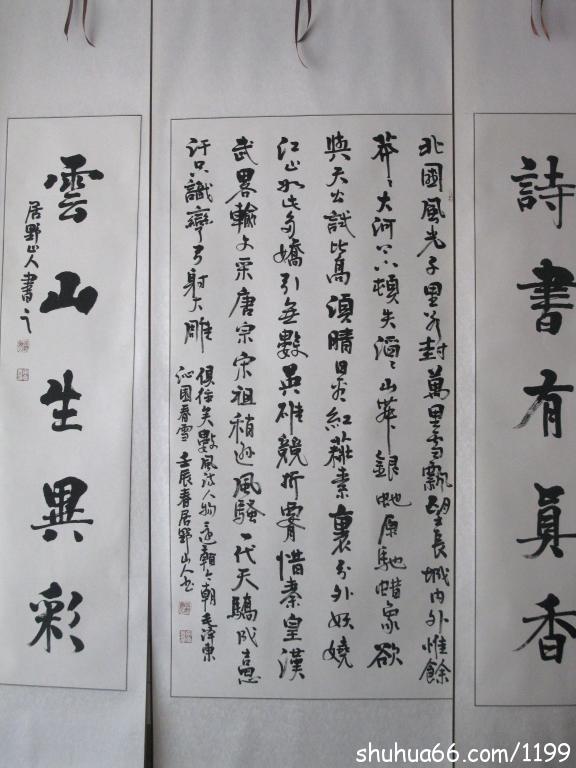 詩書有眞香
北國風光千里冰封萬里雪飄望長城内外惟餘
莽々大河上下頓失滔々山舞銀蛇原馳蜡象欲
與天公試比高須晴日看紅裝素裹分外妖嬈
江山如此多嬌引無數英雄競折腰惜秦皇漢
武畧輸文采唐宗宋祖稍遜風騷一代天驕成吉思
汗只識彎弓射大雕
俱往矣數風流人物還看今朝毛澤東
沁園春雪 壬辰春居野山人書
雲山生異彩
居野山人書之
shuhua66.com/1199